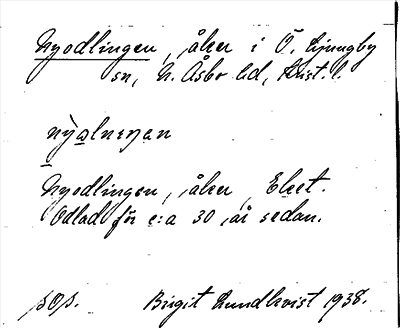 Nyodlingen, åker i Ö. Ljungby
sn, N. Åsbo hd, Krist. l.
nỳalneŋan
Nyodlingen, åker, Eket.
Odlad för c:a 30 år sedan.
Birgit Lundkvist 1938.